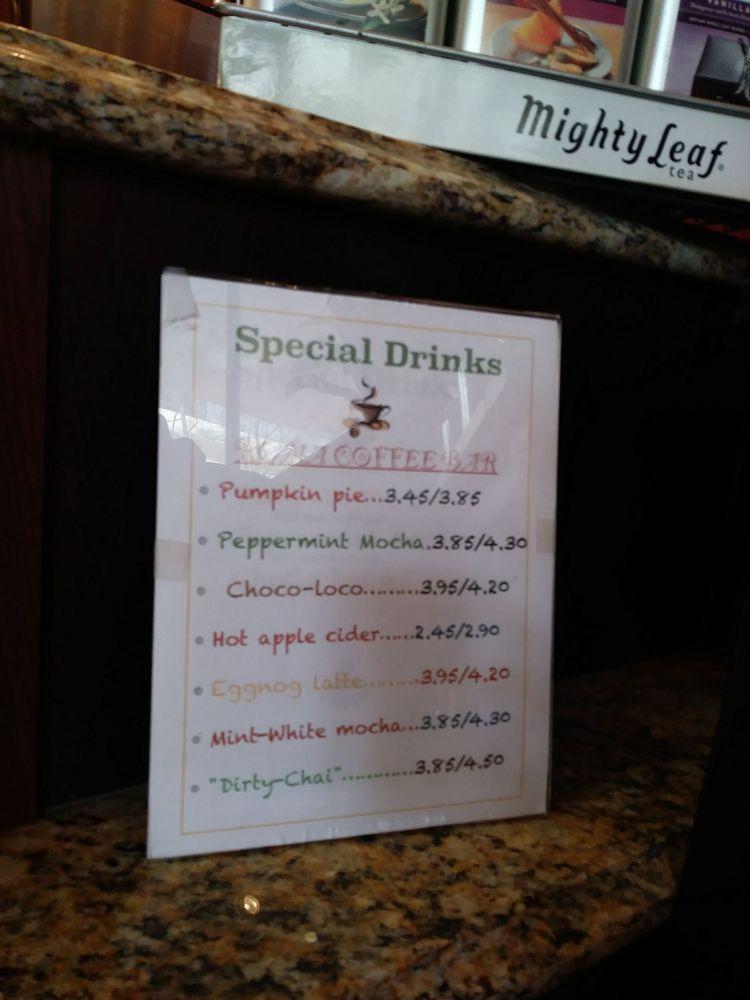 VANILLA
Mighty Leaf
tea
Special Drinks
COFFEE BAR
Pumpkin pie...3.45/3.85
Peppermint Mocha.3.85/4.30
Choco-loco.........3.95/4.20
Hot apple cider......2.45/2.90
Eggnog latte.........3.95/4.20
Mint-White mocha...3.85/4.30
"Dirty-Chai"............3.85/4.50